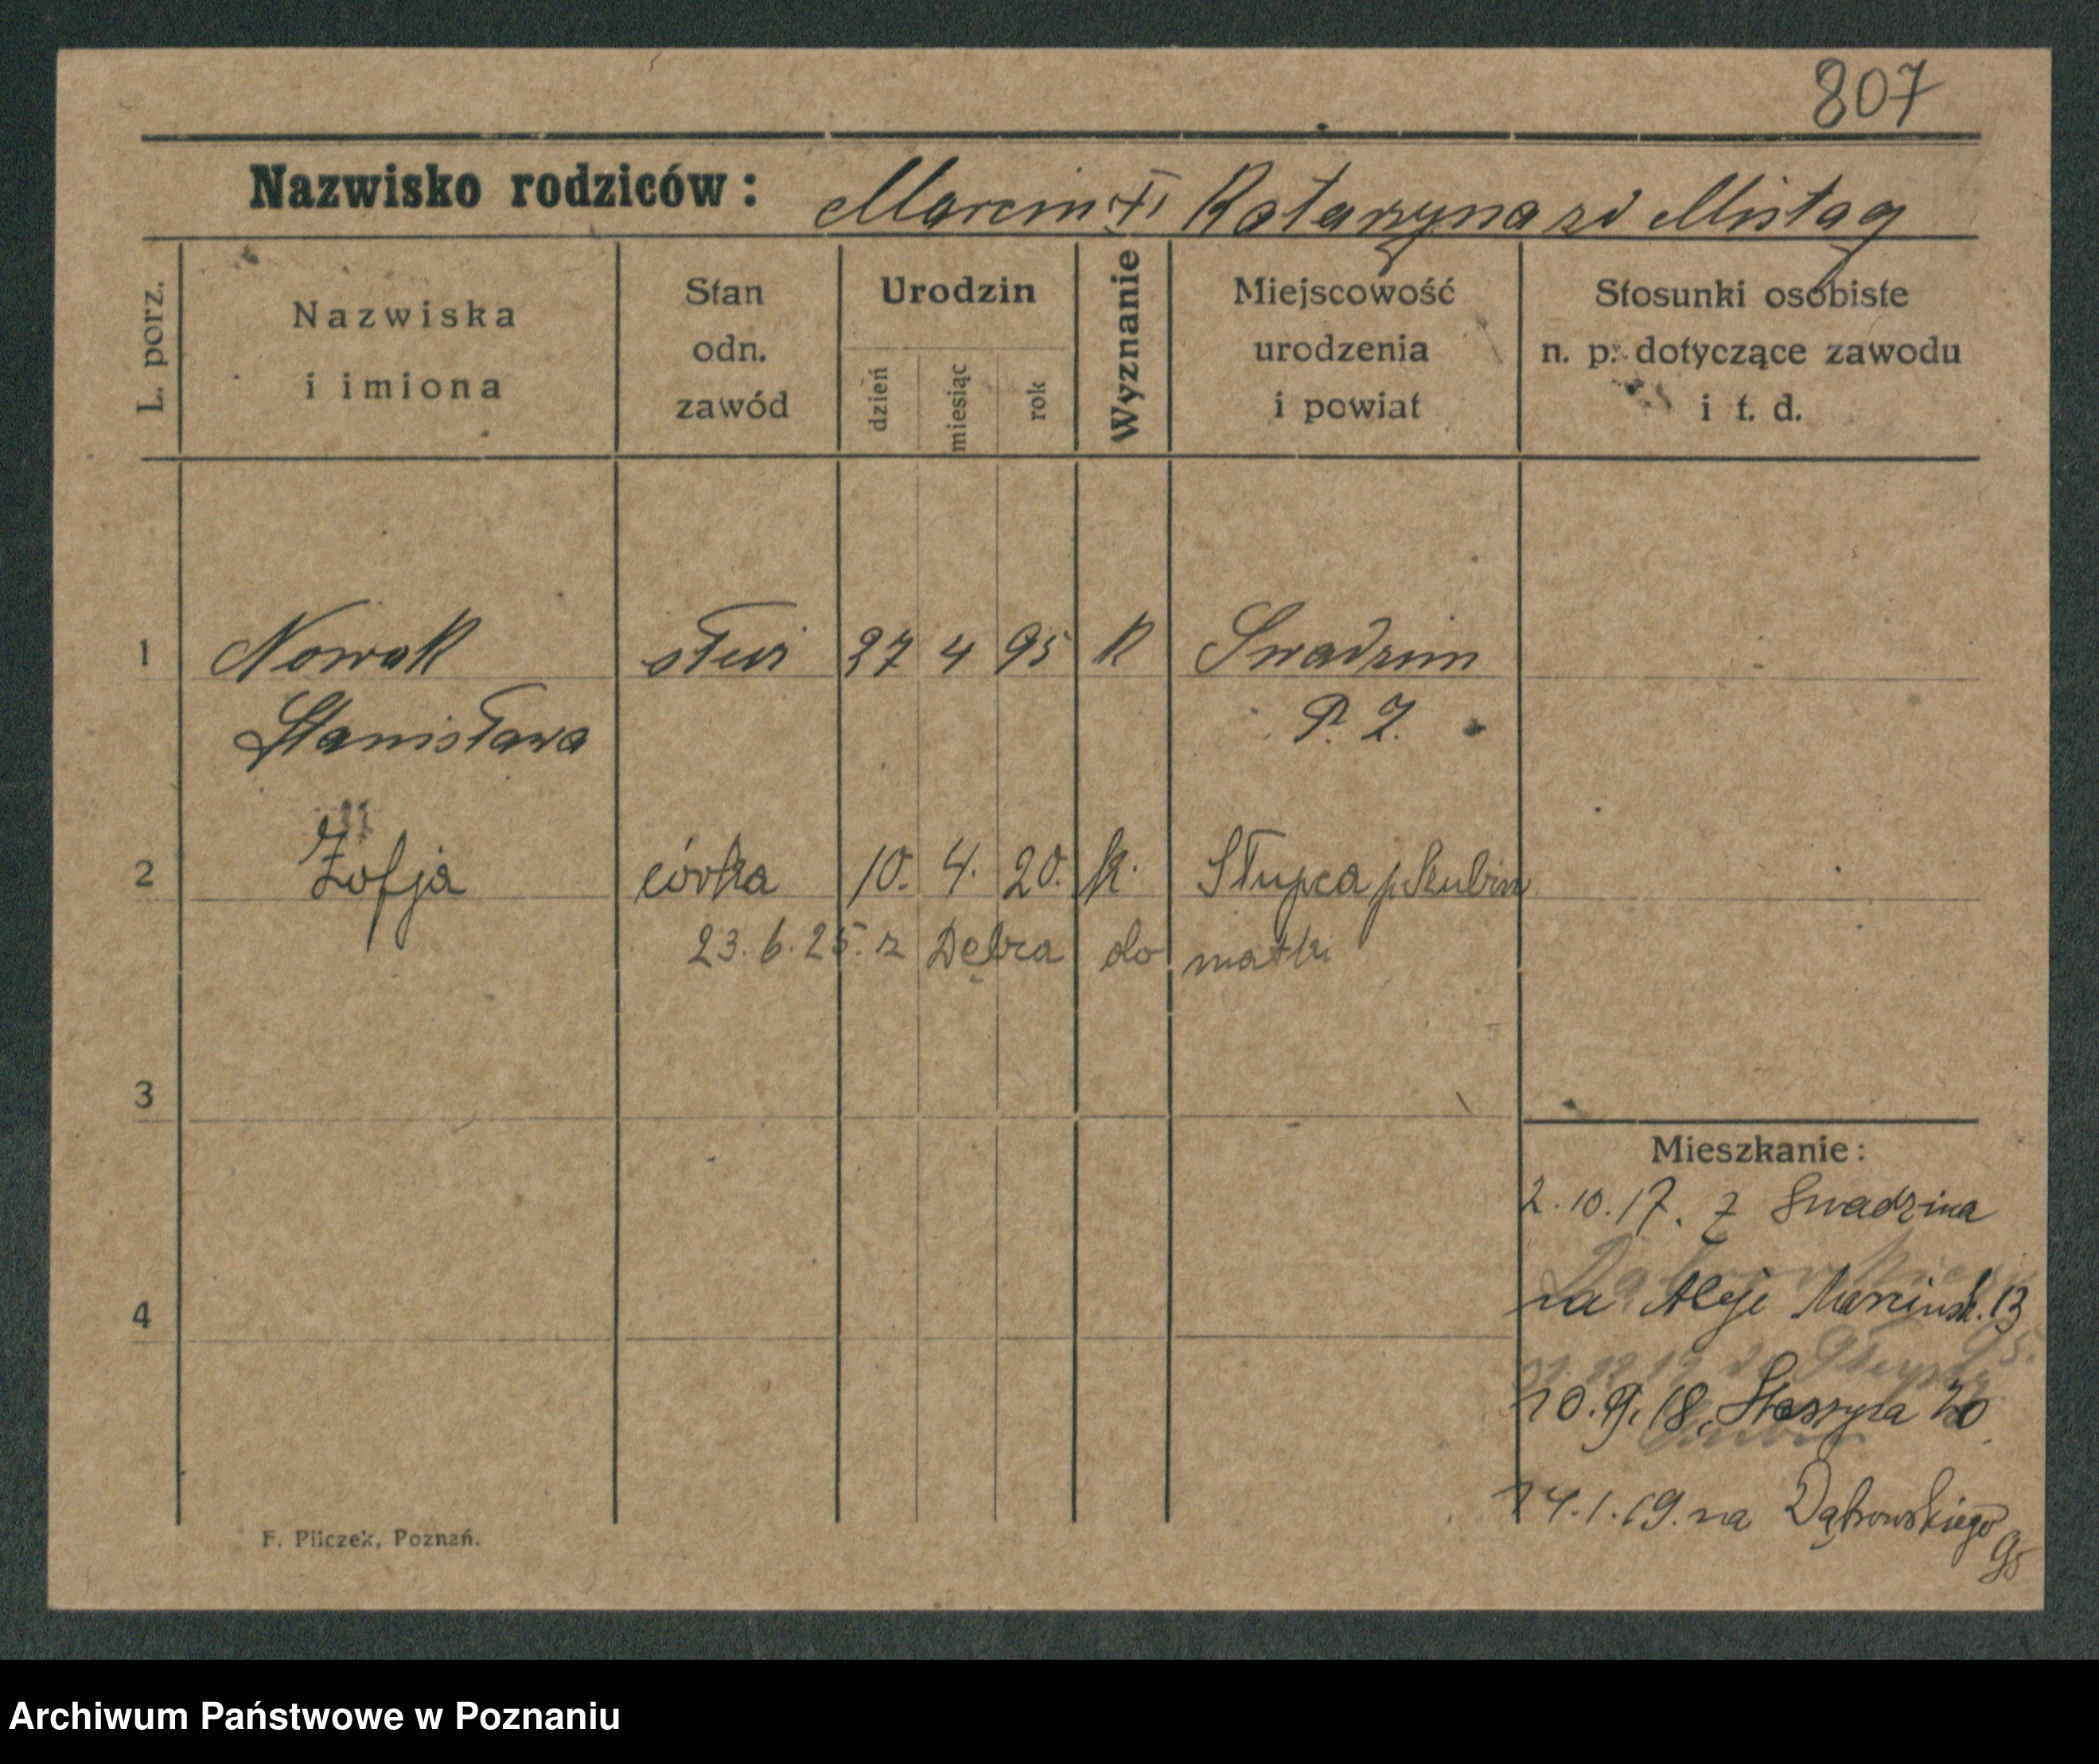 807
Nazwisko rodziców: Marcin + i Katarzyna zd
L. porz.
Nazwiska i imiona
Stan odn. zawód
Urodzin
dzień
miesiąc
rok
Wyznanie
Miejscowość urodzenia i powiat
Stosunki osobiste n. p. dotyczące zawodu i t. d.
1 Nowak służ 27 4 95 K Swadzim
Stanisława P. Z.
2 Zofja córka 10. 4. 20. k. Słupca p. Szubin
23.6.25. z Dębca do matki
3
4
Mieszkanie:
2.10.17. z Swadzima
na Aleje Marcink. 13
10.9.18. Staszyca 20
14.1.19. na Dąbrowskiego
95
F. Pilczek, Poznań.
Archiwum Państwowe w Poznaniu